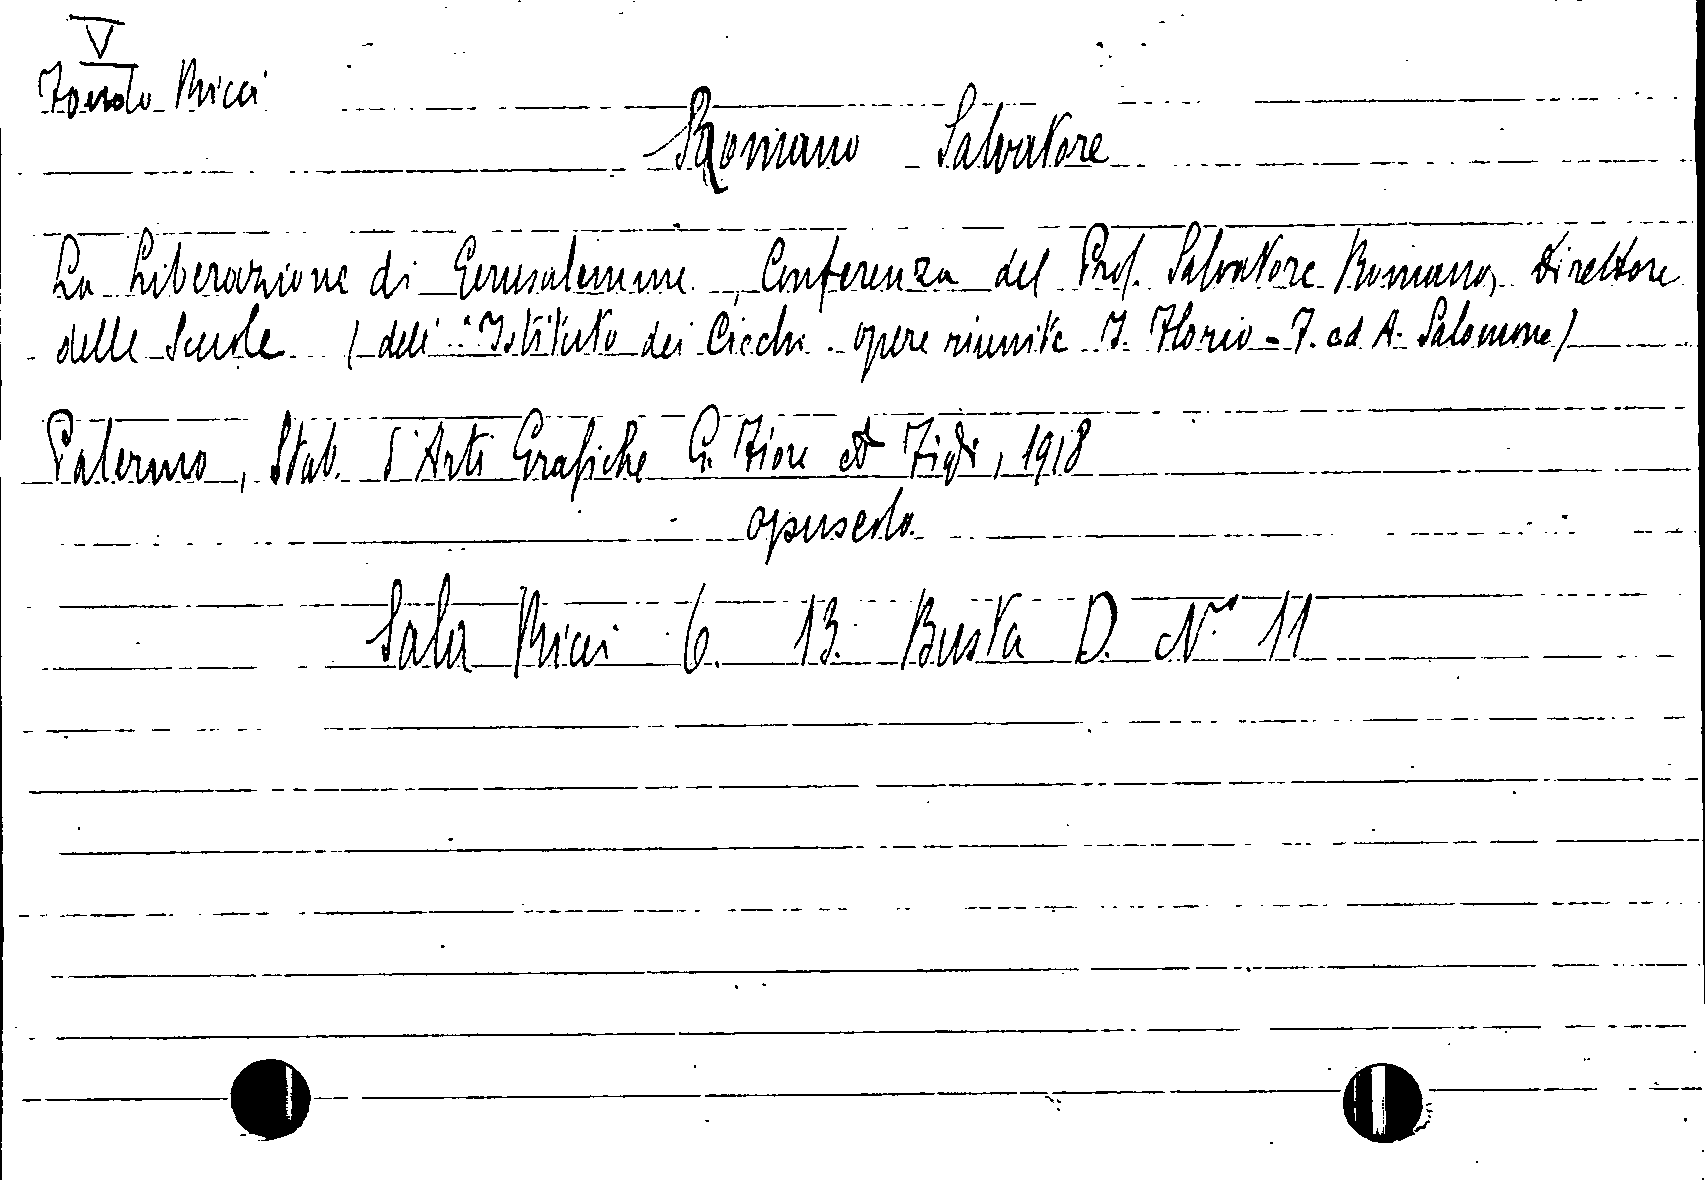 V
Fondo Ricci
Romano Salvatore
La Liberazione di Gerusalemme, Conferenza del Prof. Salvatore Romano, Direttore
delle Scuole (dell'Istituto dei Ciechi opere riunite I. Florio - F. ed A. Salomone)
Palermo, Stab. d'Arti Grafiche G. Fiore et Figli, 1918
opuscolo
Sala Ricci 6. 13. Busta D. N.° 11